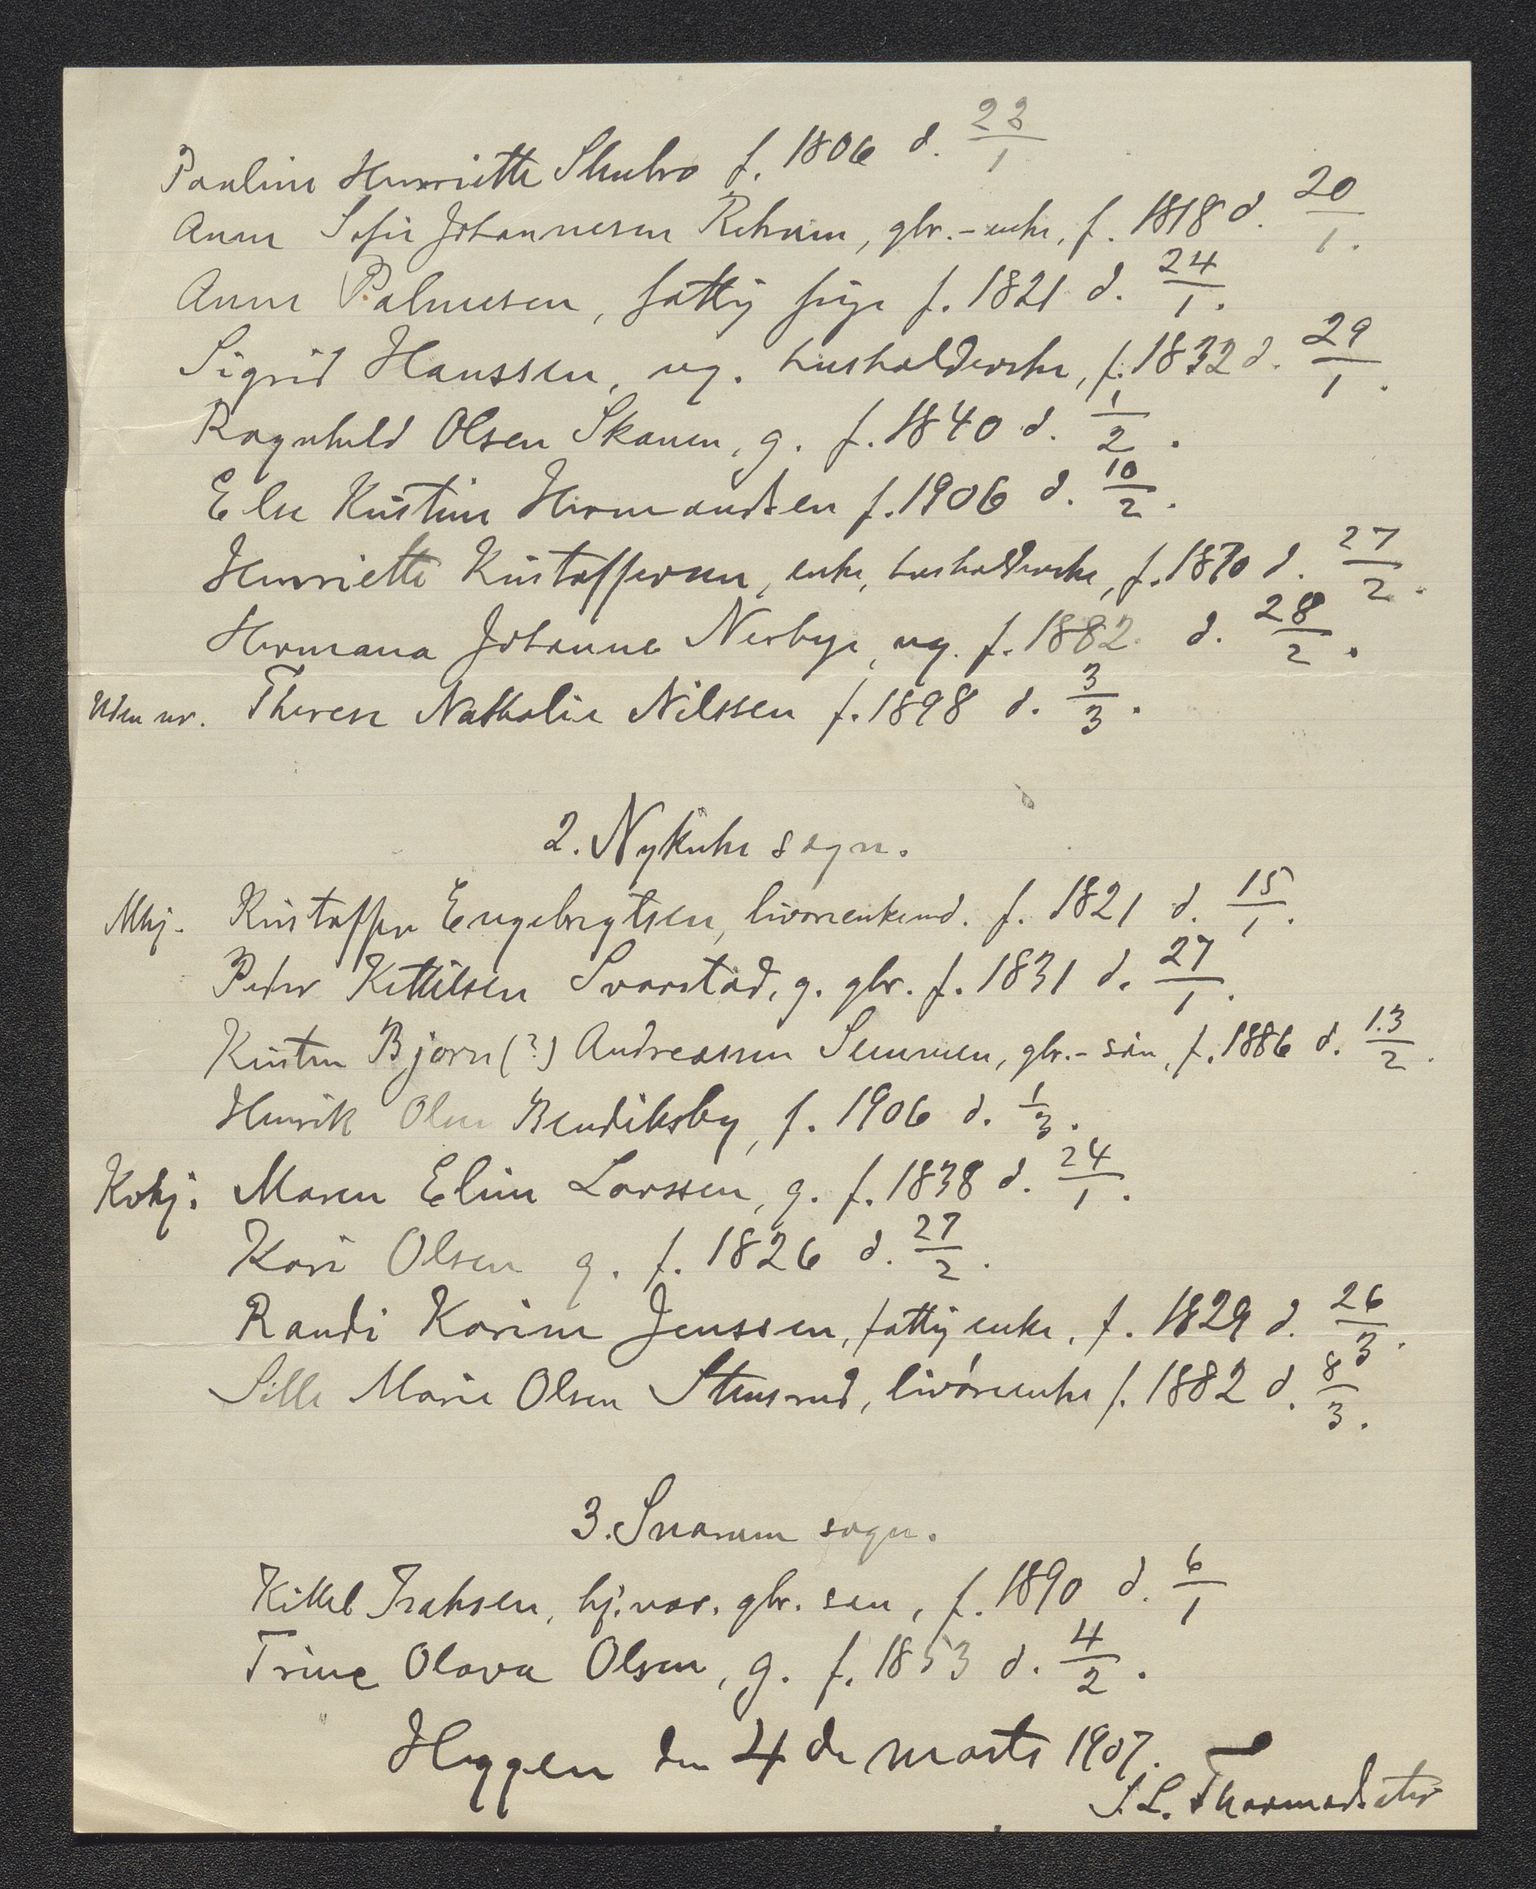 Pauline Henriette Skulro f. 1806 d. 23/1
Anne Sofie Johannesen Rehaim, gbr.-enke, f. 1818 d. 20/1.
Anne Palmesen, fattig pige f. 1821 d. 24/1.
Sigrid Hanssen, ug. husholderske, f. 1832 d. 29/1.
Ragnhild Olsen Skanen, g. f. 1840 d. 1/2.
Else Kristine Hermandsen f. 1906 d. 10/2.
Henriette Kristoffersen, enke, husholderske, f. 1870 d. 27/2.
Hermana Johanne Nerbye, ug. f. 1882 d. 28/2.
Uden nr. Therese Nathalie Nilssen f. 1898 d. 3/3.
2. Nykirke sogn.
Mkj. Kristoffer Engebrigtsen, livørenkemd. f. 1821 d. 15/1.
Peder Kittilsen Svarstad, g. gbr. f. 1831 d. 27/1.
Kristen Bjørn (?) Andreassen Semmen, gbr.-søn, f. 1886 d. 13/2.
Henrik Olsen Bendiksby, f. 1906 d. 1/3.
Kvkj. Maren Eline Larssen, g. f. 1838 d. 24/1.
Kari Olsen g. f. 1826 d. 27/2.
Randi Karine Jenssen, fattig enke, f. 1829 d. 26/3.
Sille Marie Olsen Stensrud, livørenke f. 1882 d. 8/3.
3. Snarum sogn.
Kittel Isaksen, hj.vær. gbr. søn, f. 1890 d. 6/1
Trine Olava Olsen, g. f. 1853 d. 4/2.
Heggen den 4de marts 1907.
S. L. Thormodsæter